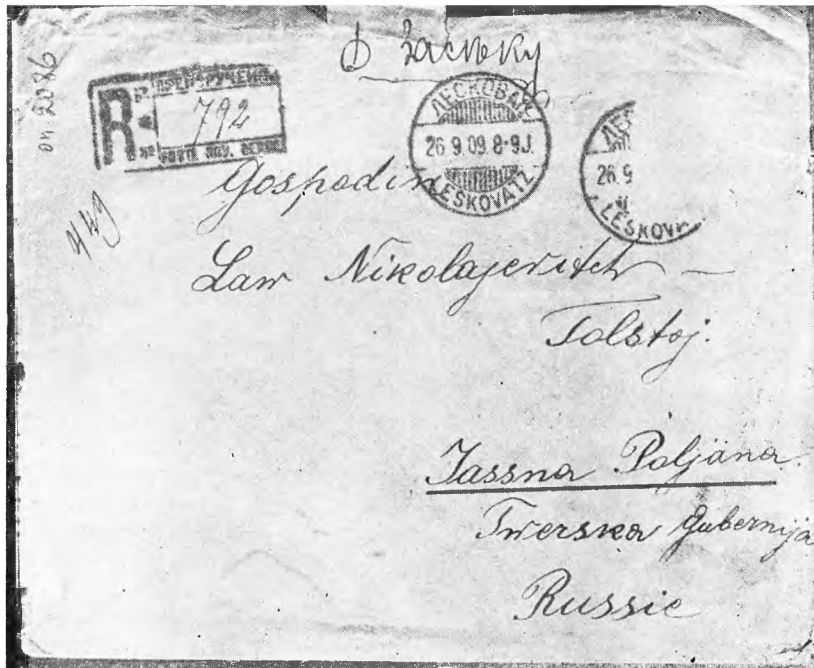 оп. 2086
R
792
ЛЕСКОВАЦ
26.9.09.8-9J.
LESKOVATZ
26.9
449
Gospodin
Law Nikolajevitch —
Tolstoj.
Jassna Poljana
Twerska Gubernija
Russie